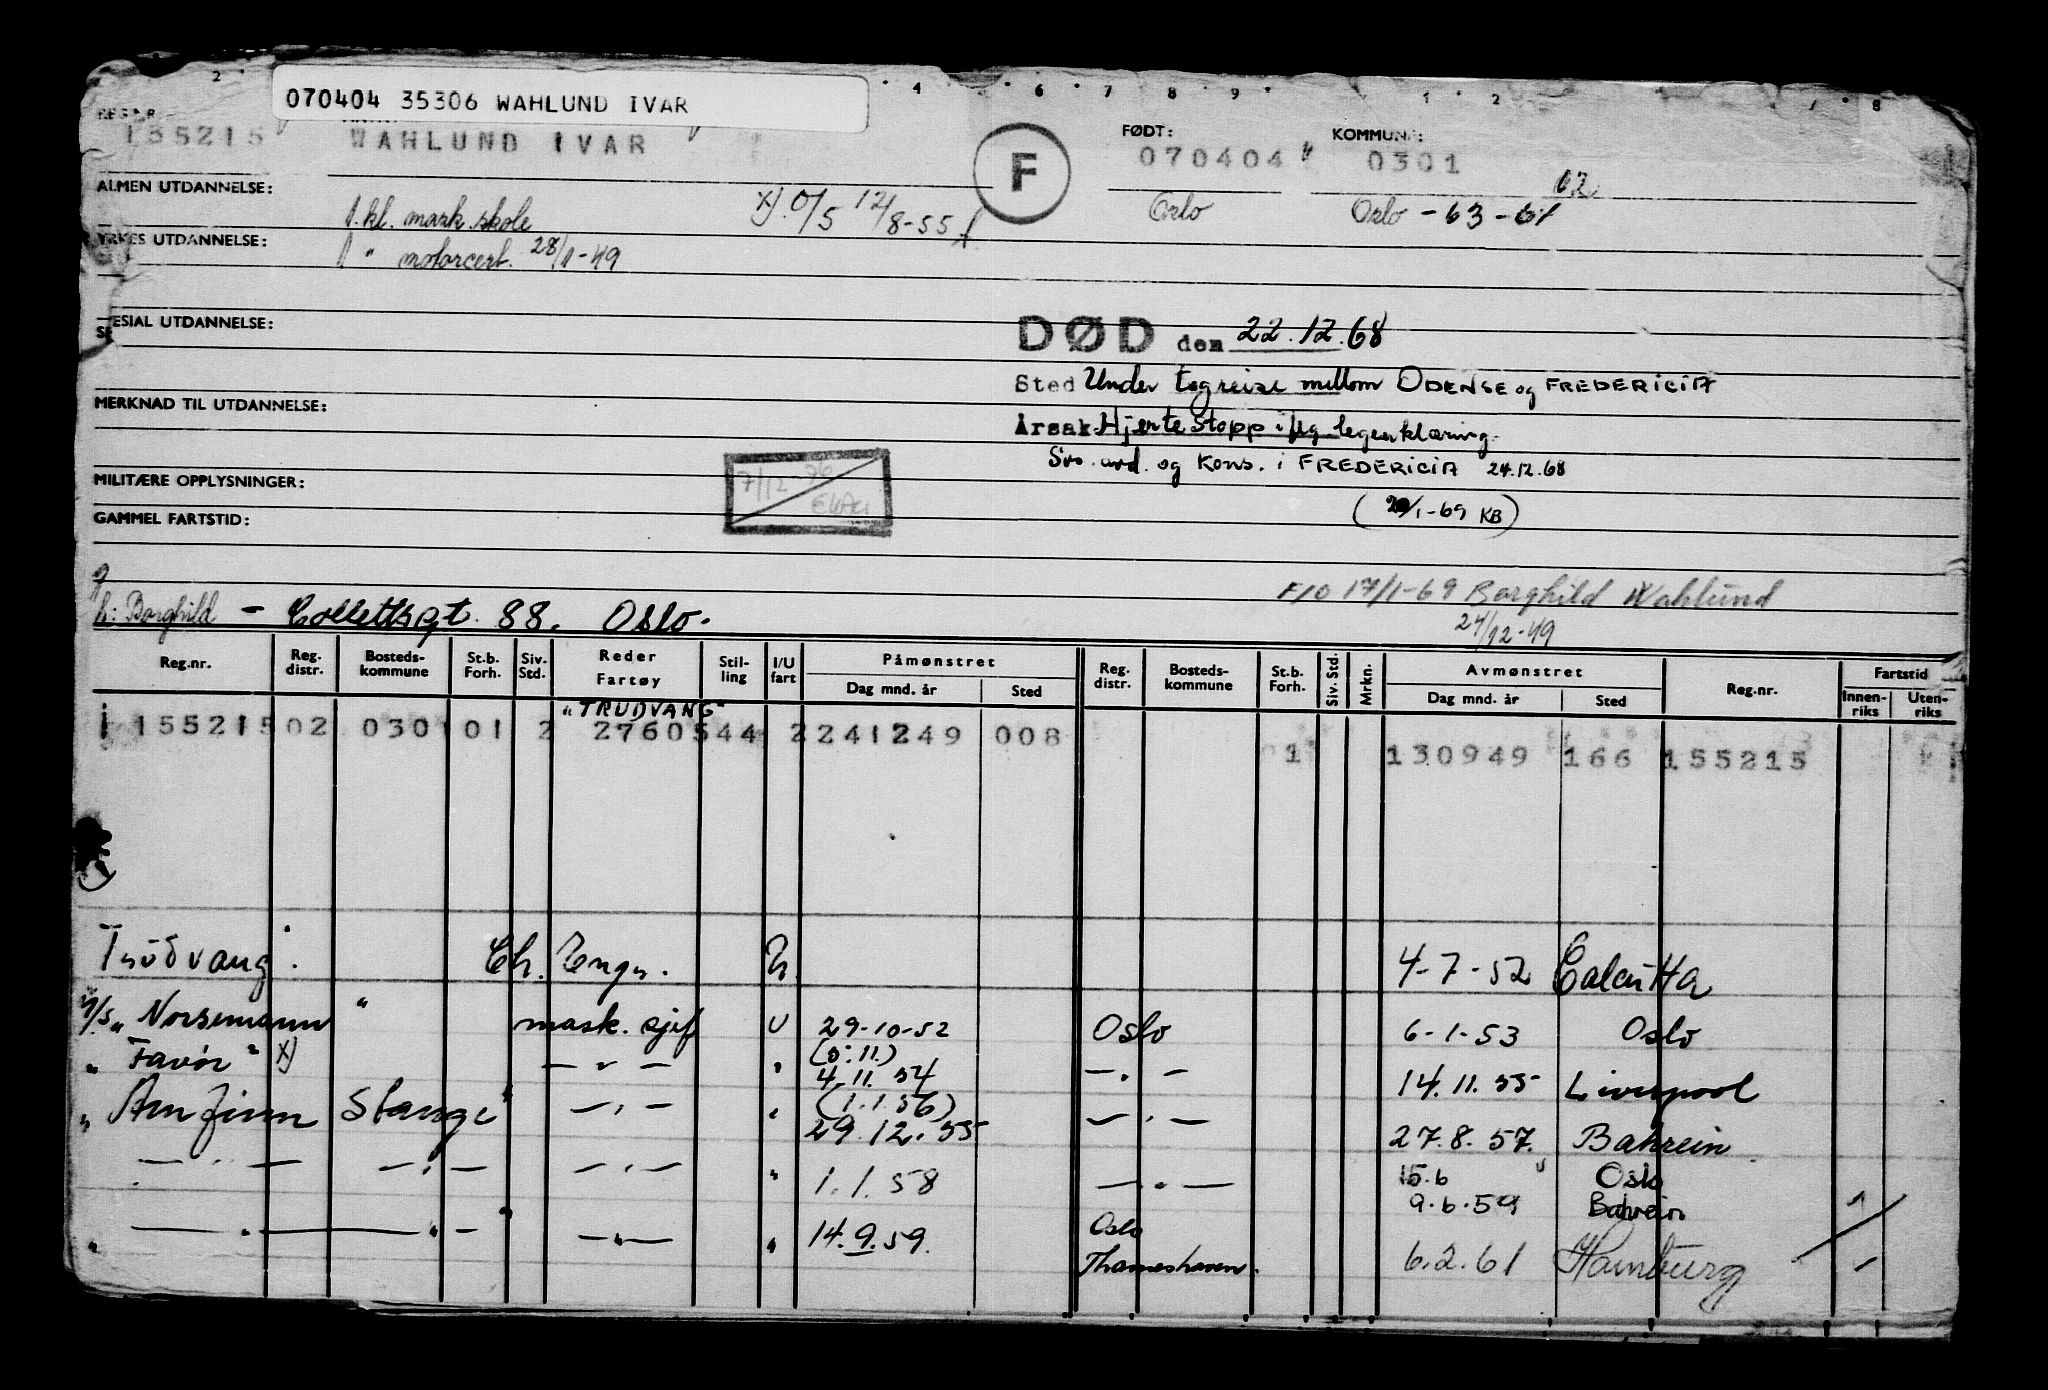 070404 35306 WAHLUND IVAR
REG.NR.
155215 WAHLUND IVAR
F
FØDT: 070404
KOMMUNE: 0301
ALMEN UTDANNELSE:
1.kl. mask.skole
x) O/S 12/8-55
Oslo
Oslo - 63 - 61 62
YRKES UTDANNELSE:
1 " motorcert. 28/1-49
SPESIAL UTDANNELSE:
DØD den 22.12.68
Sted Under togreise mellom ODENSE og FREDERICIA
MERKNAD TIL UTDANNELSE:
Årsak Hjertestopp iflg. legeerklæring.
Svs. avd. og Kons. i FREDERICIA 24.12.68
MILITÆRE OPPLYSNINGER:
7/12-76
(20/1-69 KB)
GAMMEL FARTSTID:
F/O 17/1-69 Borghild Wahlund
g
h: Borghild - Collettsgt. 88. Oslo.
24/12-49
Reg.nr. Reg. distr. Bosteds-kommune St.b. Forh. Siv. Std. Reder Fartøy Stil-ling I/U fart Påmønstret Dag mnd. år Sted Reg. distr. Bosteds-kommune St.b. Forh. Siv. Std. Mrkn. Avmønstret Dag mnd. år Sted Reg.nr. Fartstid Innen-riks Uten-riks
"TRUDVANG"
155215 02 0301 01 2 2760544 2 241249 008 01 130949 166 155215
Trudvang. Ch. Engr. U. 4-7-52 Calcutta
M/S "Norsemann " mask. sjef U 29-10-52 Oslo 6-1-53 Oslo
" Favör " x) — " — " (5.11.) 4.11.54 — " — 14.11.55 Liverpool
" Arnfinn Stange" — " — " (1.1.56) 29.12.55 — " — 27.8.57. Bahrein
— " — — " — — " — " 1.1.58 — " — 15.6 Oslo
9.6.59 Bahrein
" — " — " — " — " — " 14.9.59. Oslo
Thameshaven. 6.2.61 Hamburg